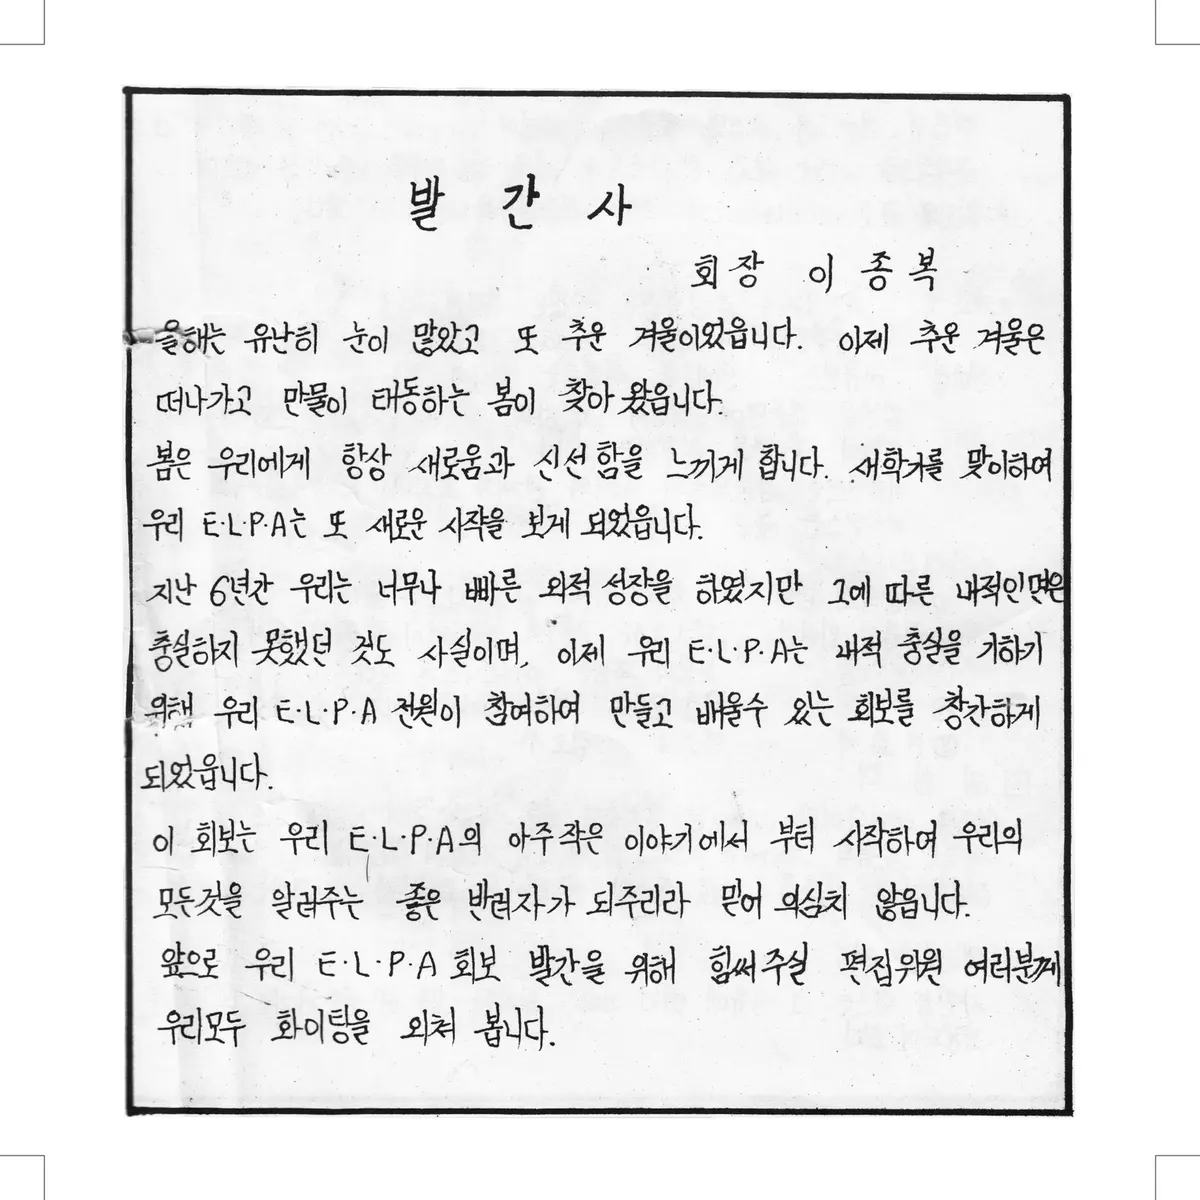 발 간 사
회장 이 종 복
올해는 유난히 눈이 많았고 또 추운 겨울이었읍니다. 이제 추운 겨울은
떠나가고 만물이 태동하는 봄이 찾아 왔읍니다.
봄은 우리에게 항상 새로움과 신선함을 느끼게 합니다. 새학기를 맞이하여
우리 E·L·P·A는 또 새로운 시작을 보게 되었읍니다.
지난 6년간 우리는 너무나 빠른 외적 성장을 하였지만 그에 따른 내적인면은
충실하지 못했던 것도 사실이며, 이제 우리 E·L·P·A는 내적 충실을 기하기
위해 우리 E·L·P·A 전원이 참여하여 만들고 배울수 있는 회보를 창간하게
되었읍니다.
이 회보는 우리 E·L·P·A의 아주작은 이야기에서 부터 시작하여 우리의
모든것을 알려주는 좋은 반려자가 되주리라 믿어 의심치 않읍니다.
앞으로 우리 E·L·P·A 회보 발간을 위해 힘써주실 편집위원 여러분께
우리모두 화이팅을 외쳐 봅니다.